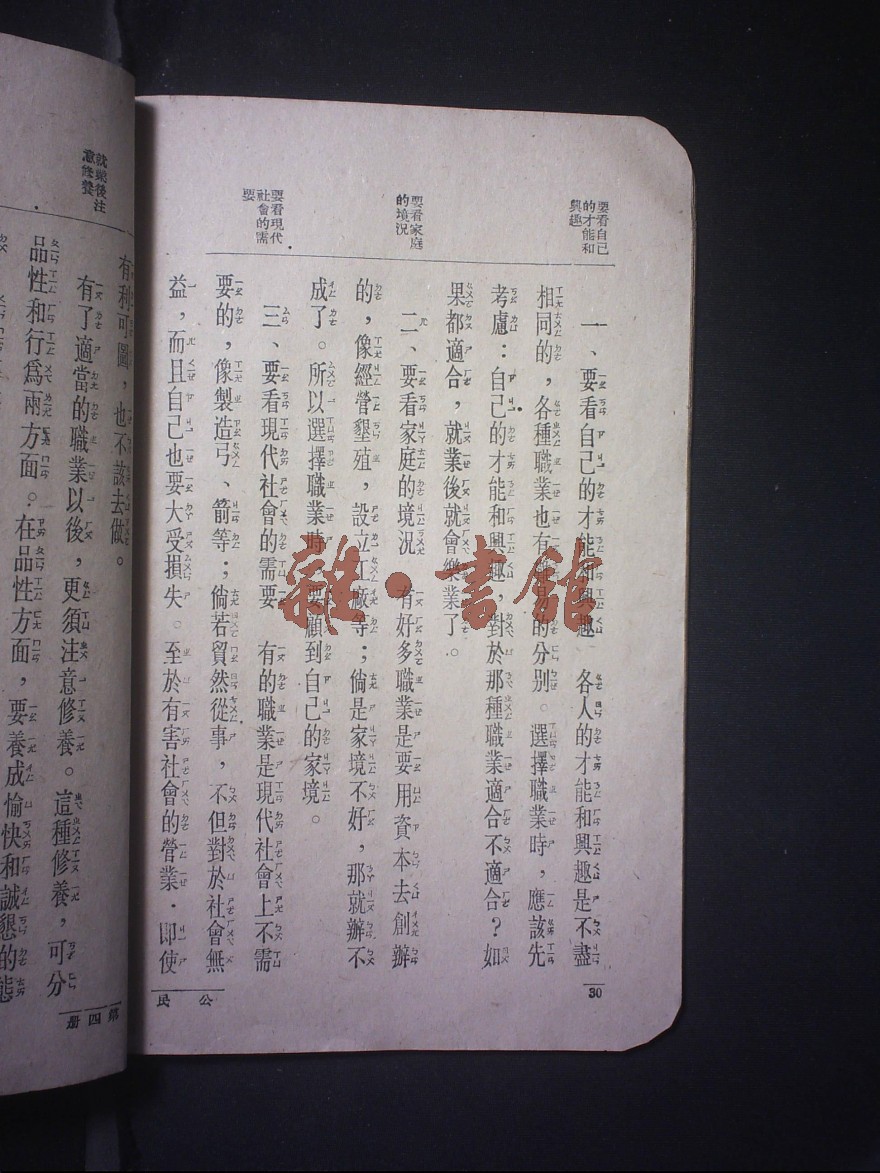 要看自己
的才能和
興趣
要看家庭
的境況
要看現代
社會的需
要
一、要看自己的才能和興趣　各人的才能和興趣是不盡
相同的，各種職業也有　的分別。選擇職業時，應該先
考慮：自己的才能和興趣，對於那種職業適合不適合？如
果都適合，就業後就會樂業了。
二、要看家庭的境況　有好多職業是要用資本去創辦
的，像經營墾殖，設立工廠等；倘是家境不好，那就辦不
成了。所以選擇職業時，要顧到自己的家境。
三、要看現代社會的需要　有的職業是現代社會上不需
要的，像製造弓、箭等；倘若貿然從事，不但對於社會無
益，而且自己也要大受損失。至於有害社會的營業．即使
30
公民
就業後注
意修養
有利可圖，也不該去做。
有了適當的職業以後，更須注意修養。這種修養，可分
品性和行爲兩方面。在品性方面，要養成愉快和誠懇的態
第四册
雜·書館